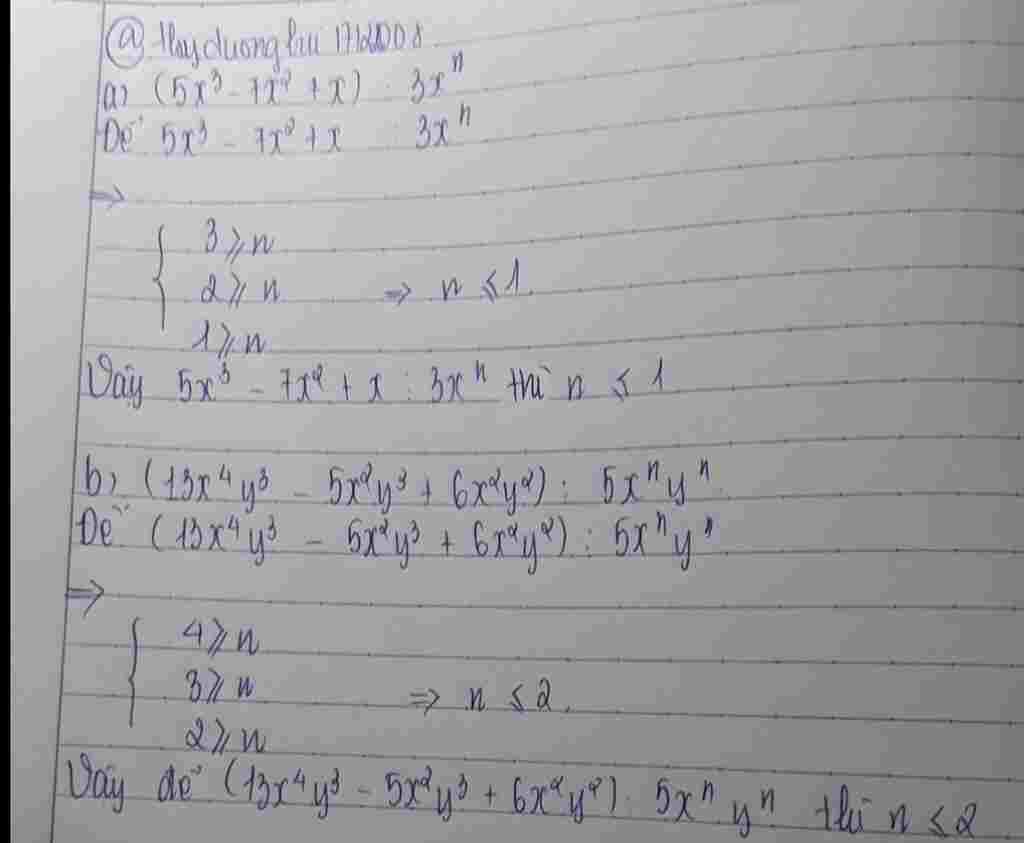 @ thuyduongluu 17122008
a) (5x³ - 7x² + x) : 3xⁿ
Để 5x³ - 7x² + x : 3xⁿ
⇒
3 ≥ n
2 ≥ n ⇒ n ≤ 1
1 ≥ n
Vây 5x³ - 7x² + x : 3xⁿ thì n ≤ 1
b) (13x⁴y³ - 5x²y³ + 6x²y²) : 5xⁿyⁿ
Để (13x⁴y³ - 5x²y³ + 6x²y²) : 5xⁿyⁿ
⇒
4 ≥ n
3 ≥ n ⇒ n ≤ 2.
2 ≥ n
Vây để (13x⁴y³ - 5x²y³ + 6x²y²) : 5xⁿyⁿ thì n ≤ 2